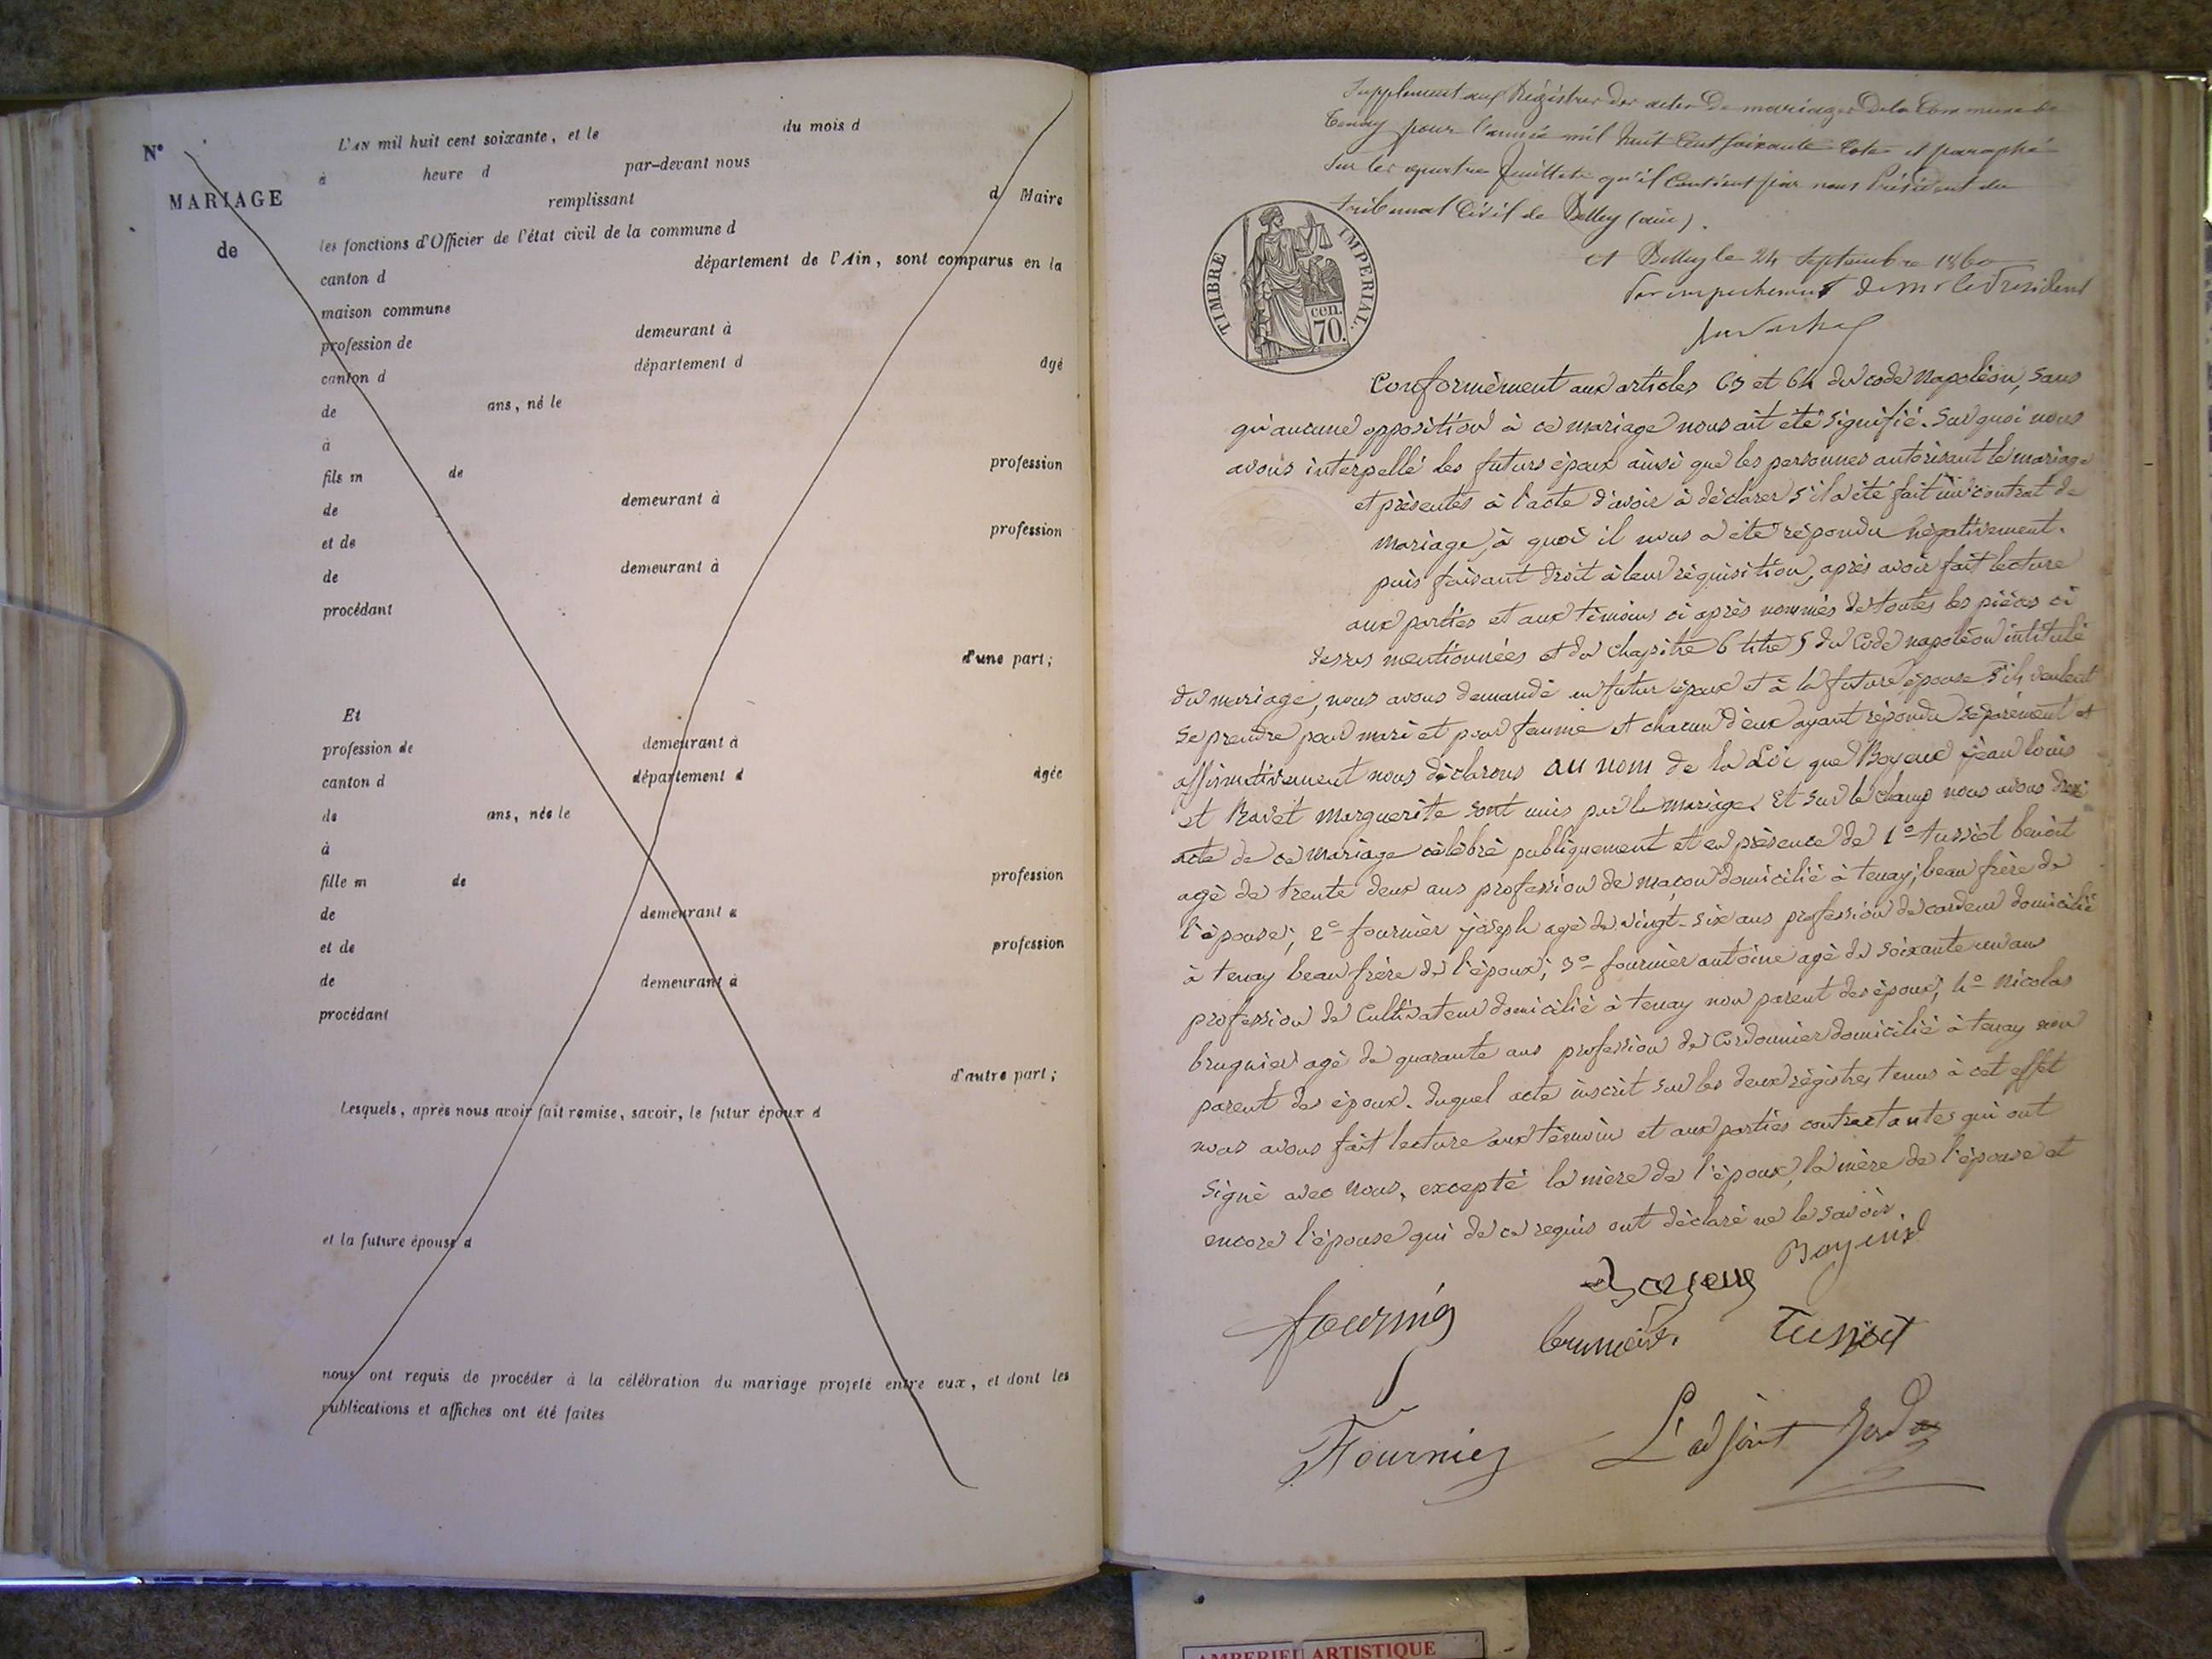 N°
MARIAGE
de
L'AN mil huit cent soixante, et le du mois d
à heure d par-devant nous
remplissant d Maire
les fonctions d'Officier de l'état civil de la commune d
canton d département de l'Ain, sont comparus en la
maison commune
profession de demeurant à
canton d département d âgé
de ans, né le
à
fils m de profession
de demeurant à
et de profession
de demeurant à
procédant
d'une part;
Et
profession de demeurant à
canton d département d âgée
de ans, née le
à
fille m de profession
de demeurant à
et de profession
de demeurant à
procédant
d'autre part;
Lesquels, après nous avoir fait remise, savoir, le futur époux d
et la future épouse d
nous ont requis de procéder à la célébration du mariage projeté entre eux, et dont les
publications et affiches ont été faites
Supplément aux Régistres des actes de mariages de la Commune de
Tenay pour l'année mil huit Cent soixante Coté et paraphé
Sur les quatre feuillets qu'il Contient par nous Président du
Tribunal Civil de Belley (ain).
à Belley le 24 Septembre 1860
Par empechement de Mr le President
TIMBRE IMPERIAL.
cen.
70.
Conformèment aux articles 63 et 64 du code Napolèon, sans
qu'aucune opposition à ce mariage nous ait été signifié. Sur quoi nous
avons interpellé les futurs époux ainsi que les personnes autorisant le mariage
et présentes à l'acte d'avoir à déclarer s'il a été fait un contrat de
mariage, à quoi il nous a été répondu négativement.
puis faisant droit à leur réquisition, après avoir fait lecture
aux parties et aux témoins ci après nommés de toutes les pièces ci
dessus mentionnées et du chapitre 6 titre 5 du Code napoléon intitulé
du mariage, nous avons demandé au futur époux et à la future épouse s'ils veulent
se prendre pour mari et pour femme et chacun d'eux ayant répondu séparément et
affirmativement nous déclarons au nom de la Loi que Boyeux jean louis
et Ravet Marguerite sont unis par le mariage. Et sur le champ nous avons dressé
acte de ce mariage célébré publiquement et en présence de 1° tussiot benoit
agé de trente deux ans profession de maçon domicilié à tenay, beau frère de
l'épouse; 2° fournier joseph agé de vingt-six ans profession de cardeur domicilié
à tenay beau frère de l'époux; 3° fournier antoine agé de soixante un ans
profession de Cultivateur domicilié à tenay non parent des époux; 4° Nicolas
brugnier agé de quarante ans profession de Cordonnier domicilié à tenay non
parent des époux. duquel acte inscrit sur les deux régistres tenus à cet effet
nous avons fait lecture aux témoins et aux parties contractantes qui ont
signé avec nous, excepté la mère de l'époux, la mère de l'épouse et
encore l'épouse qui de ce requis ont déclaré ne le savoir.
fournier
Tussiot
Fournier
L'adjoint
AMBERIEU ARTISTIQUE